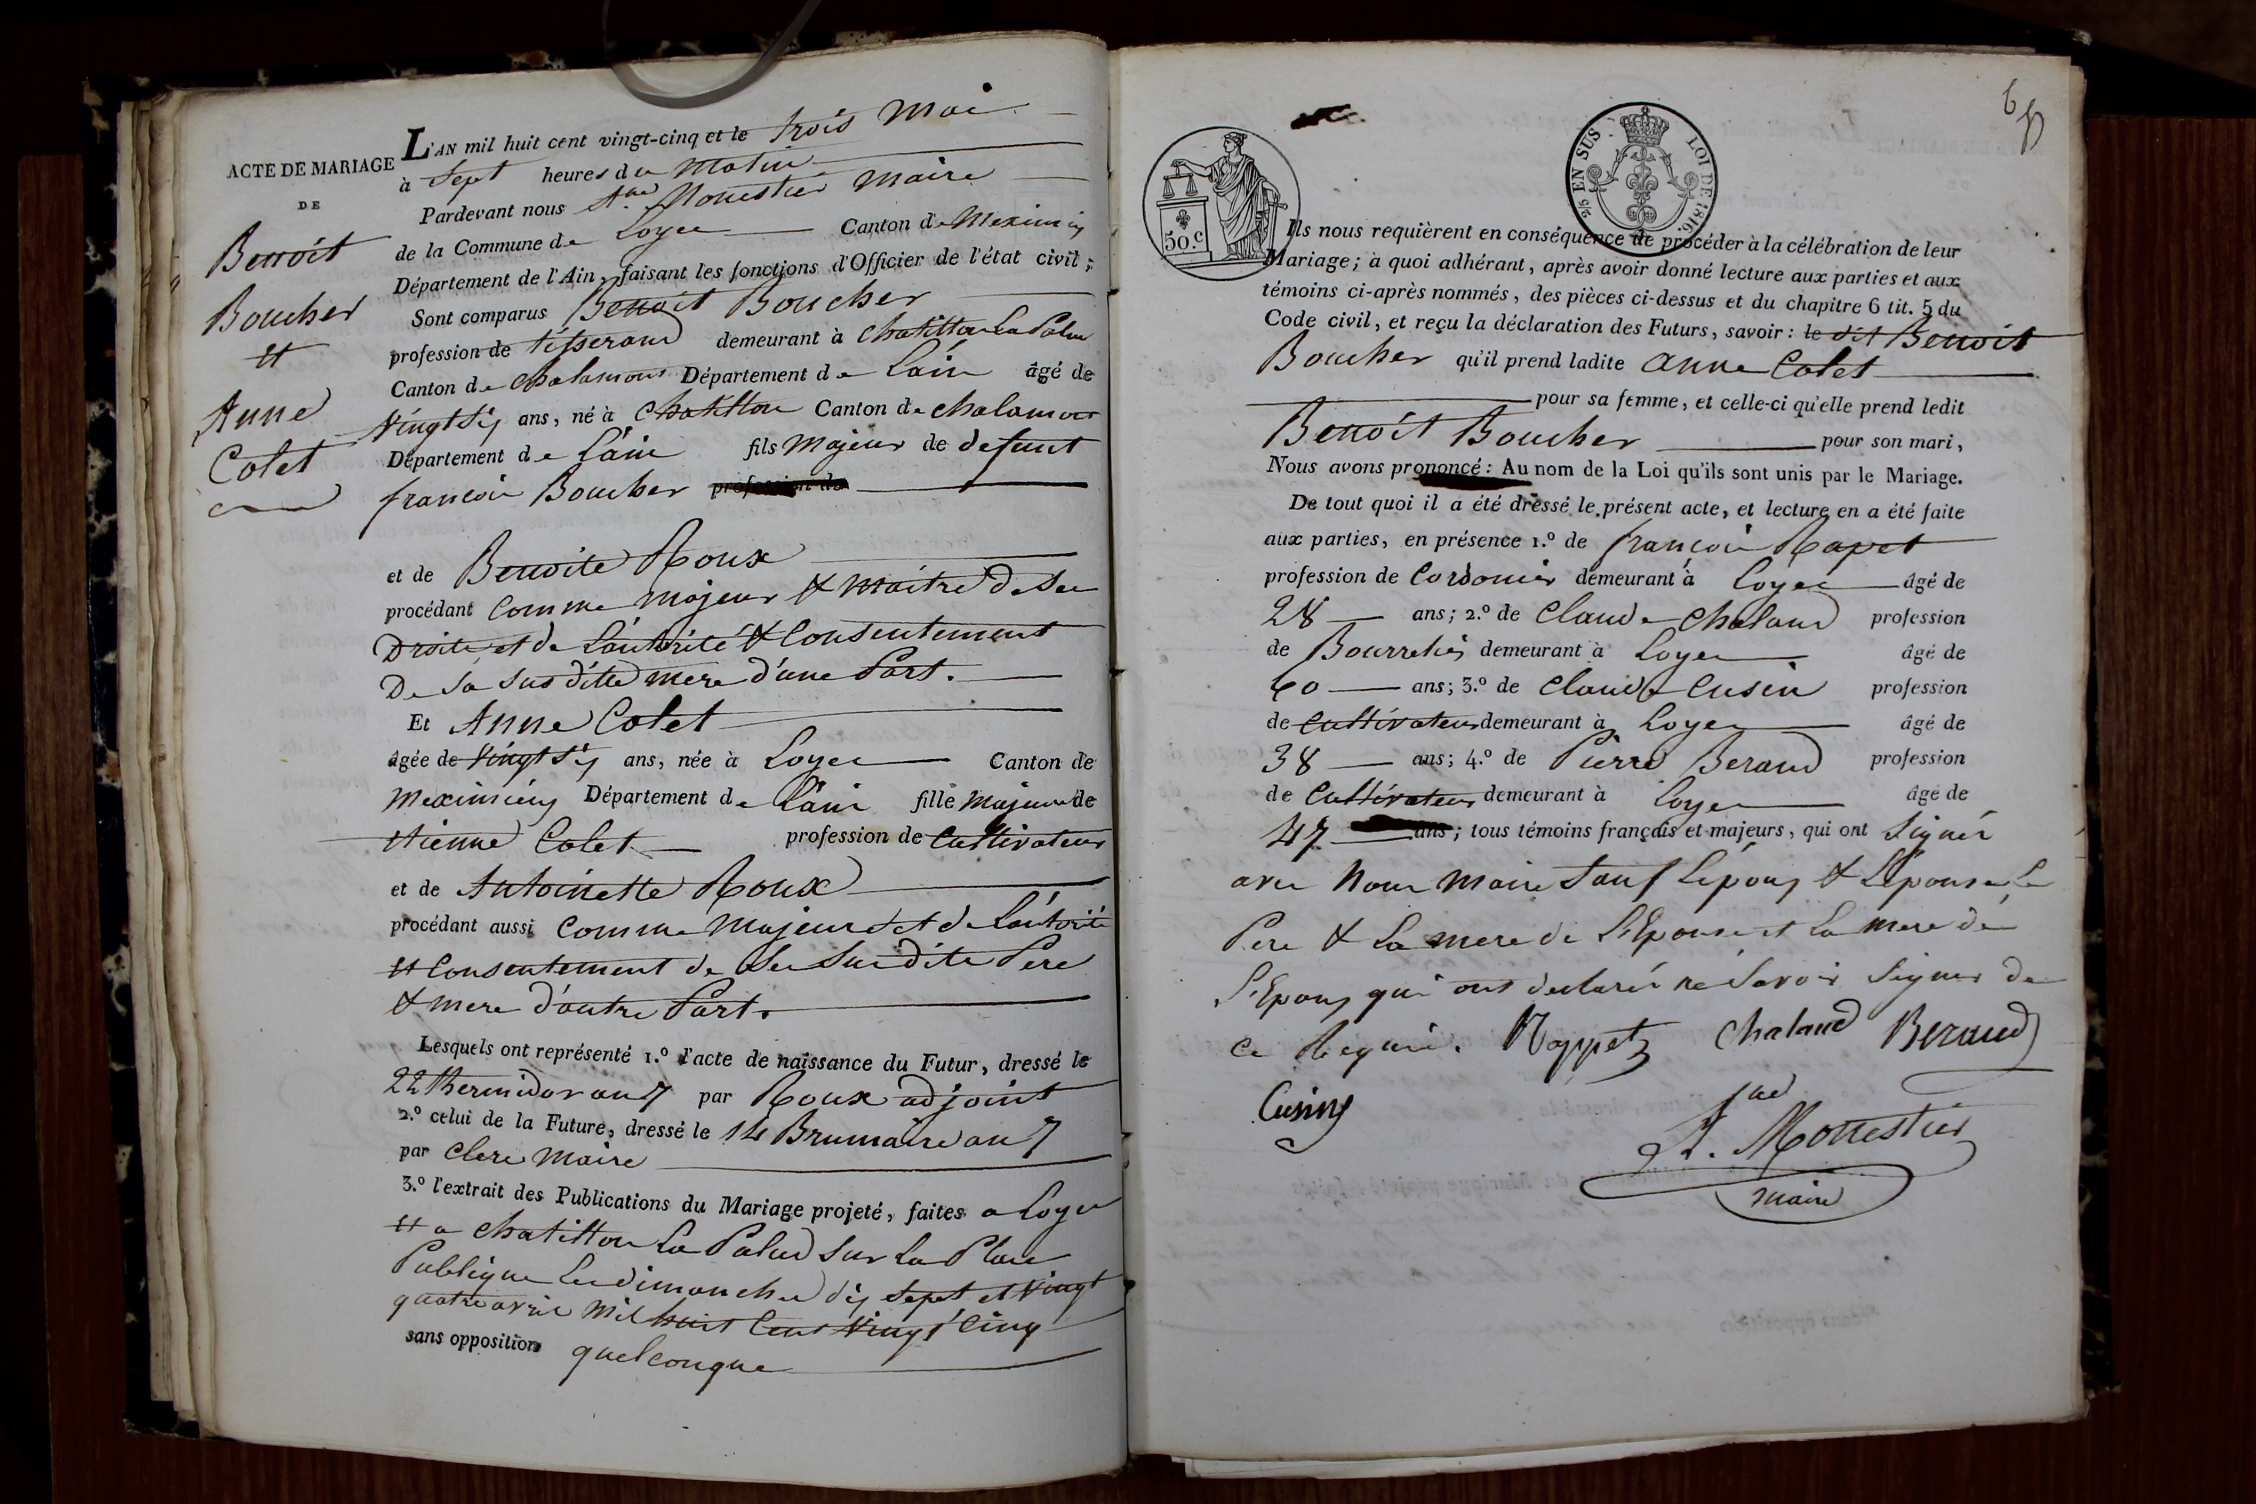 ACTE DE MARIAGE
DE
Benoit
Boucher
et
Anne
Colet
L'AN mil huit cent vingt-cinq et le trois Mai
à Sept heures du Matin
Pardevant nous Monestier Maire
de la Commune de Loyes Canton de Meximieu
Département de l'Ain, faisant les fonctions d'Officier de l'état civil;
Sont comparus Benoit Boucher
profession de tisserand demeurant à Chatillon La Palud
Canton de Chalamont Département de Lain âgé de
Vingt Six ans, né à Chatillon Canton de Chalamont
Département de Lain fils Majeur de defunt
francois Boucher profession de
et de Benoite Roux
procédant Comme Majeur & Maitre de Ses
Droits et de L'autorité & Consentement
De Sa Sus ditte mere d'une Part.
Et Anne Colet
âgée de Vingt Six ans, née à Loyes Canton de
Meximieux Département de Lain fille Majeure de
Etienne Colet profession de Cultivateur
et de Antoinette Roux
procédant aussi Comme Majeure et de L'autorité
et Consentement de Ses Sus dits Pere
& mere d'autre Part.
Lesquels ont représenté 1.º l'acte de naissance du Futur, dressé le
22 thermidor an 7 par Roux adjoint
2.º celui de la Future, dressé le 14 Brumaire an 7
par Clere Maire
3.º l'extrait des Publications du Mariage projeté, faites a Loyes
et a Chatillon La Palud Sur La Place
Publique Les dimanches dix Sept et Vingt
quatre avril Mil huit Cent Vingt Cinq
sans opposition quelconque
50.c
2/5 EN SUS LOI DE 1816.
Ils nous requièrent en conséquence de procéder à la célébration de leur
Mariage; à quoi adhérant, après avoir donné lecture aux parties et aux
témoins ci-après nommés, des pièces ci-dessus et du chapitre 6 tit. 5 du
Code civil, et reçu la déclaration des Futurs, savoir: le dit Benoit
Boucher qu'il prend ladite Anne Colet
pour sa femme, et celle-ci qu'elle prend ledit
Benoit Boucher pour son mari,
Nous avons prononcé: Au nom de la Loi qu'ils sont unis par le Mariage.
De tout quoi il a été dressé le présent acte, et lecture en a été faite
aux parties, en présence 1.º de francois Rapet
profession de Cordonier demeurant à Loyes âgé de
28 ans; 2.º de Claude Chaland profession
de Bourrelier demeurant à Loyes âgé de
60 ans; 3.º de Claude Cusin profession
de Cultivateur demeurant à Loyes âgé de
38 ans; 4.º de Pierre Beraud profession
de Cultivateur demeurant à Loyes âgé de
47 ans; tous témoins français et majeurs, qui ont Signés
avec Nous Maire Sauf L'epoux & L'epouse Le
Pere & La mere de L'Epouse et La mere de
L'Epoux qui ont declarés ne Savoir Signer de
Ce Requis. Rappet Chaland Beraud
Cusin
A. Monestier
maire